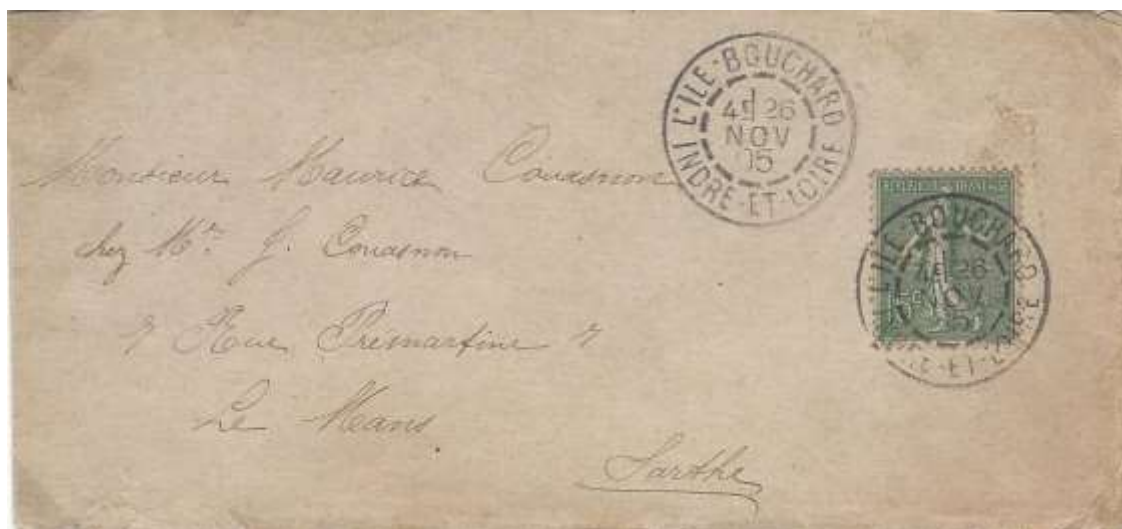 L'ILE-BOUCHARD
4E 26
NOV
15
INDRE-ET-LOIRE
Monsieur Maurice Couasnon
chez Mr J. Couasnon
7 Rue Prémartine 7
Le Mans
Sarthe
L'ILE BOUCHARD
26
NOV
15
ET-LOIRE